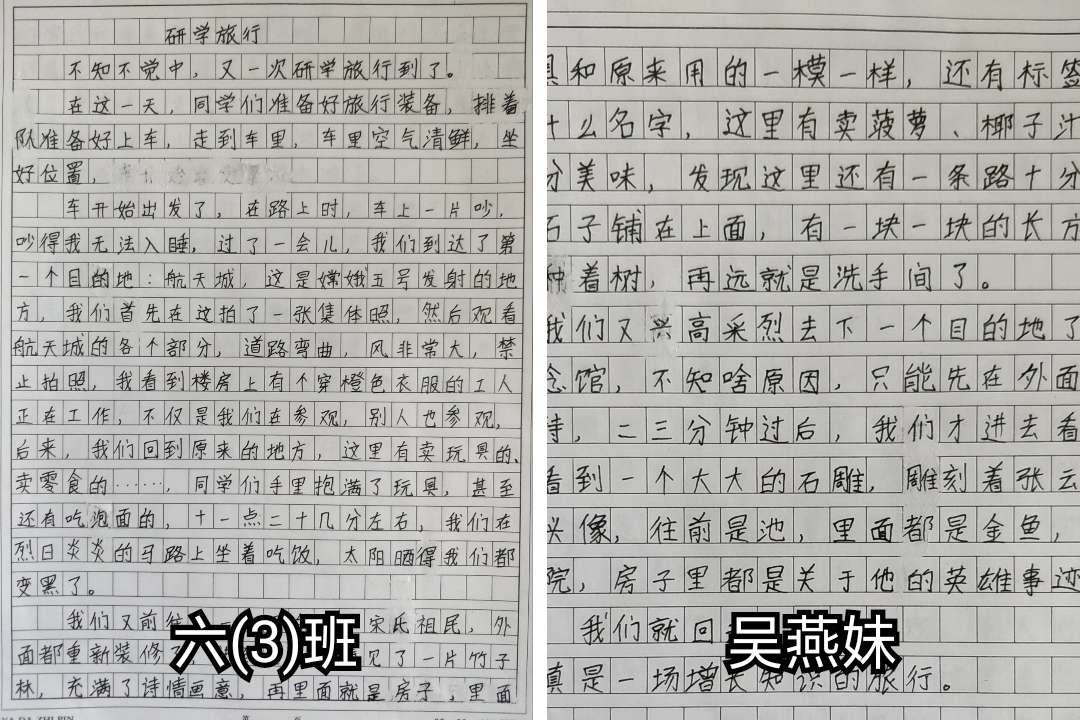 研学旅行
不知不觉中，又一次研学旅行到了。
在这一天，同学们准备好旅行装备，排着
队准备好上车，走到车里，车里空气清鲜，坐
好位置，
车开始出发了，在路上时，车上一片吵，
吵得我无法入睡，过了一会儿，我们到达了第
一个目的地：航天城，这是嫦娥五号发射的地
方，我们首先在这拍了一张集体照，然后观看
航天城的各个部分，道路弯曲，风非常大，禁
止拍照，我看到楼房上有个穿橙色衣服的工人
正在工作，不仅是我们在参观，别人也参观，
后来，我们回到原来的地方，这里有卖玩具的、
卖零食的……，同学们手里抱满了玩具，甚至
还有吃泡面的，十一点二十几分左右，我们在
烈日炎炎的马路上坐着吃饭，太阳晒得我们都
变黑了。
我们又前往 宋氏祖民，外
面都重新装修了 见了一片竹子
林，充满了诗情画意，再里面就是房子，里面
具和原来用的一模一样，还有标签
什么名字，这里有卖菠萝、椰子汁
分美味，发现这里还有一条路十分
石子铺在上面，有一块一块的长方
种着树，再远就是洗手间了。
我们又兴高采烈去下一个目的地了
念馆，不知啥原因，只能先在外面
待，二三分钟过后，我们才进去看
看到一个大大的石雕，雕刻着张云
兴像，往前是池，里面都是金鱼，
院，房子里都是关于他的英雄事迹
我们就回
真是一场增长知识的旅行。
六(3)班
吴燕妹